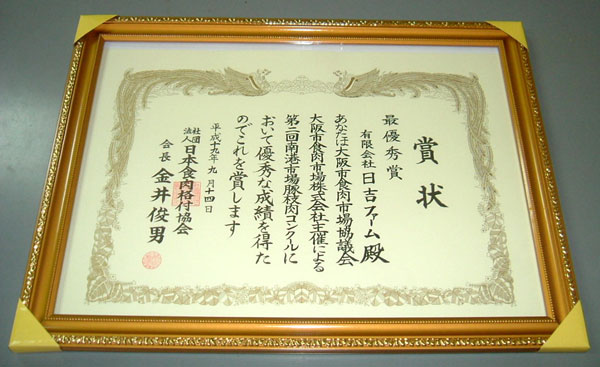 賞状
最優秀賞
有限会社 日吉ファーム殿
あなたは大阪市食肉市場協議会
大阪市食肉市場株式会社主催による
第二回南港市場豚枝肉コンクルに
おいて優秀な成績を得た
のでこれを賞します
平成十九年九月十四日
社団法人 日本食肉格付協会
会長 金井俊男